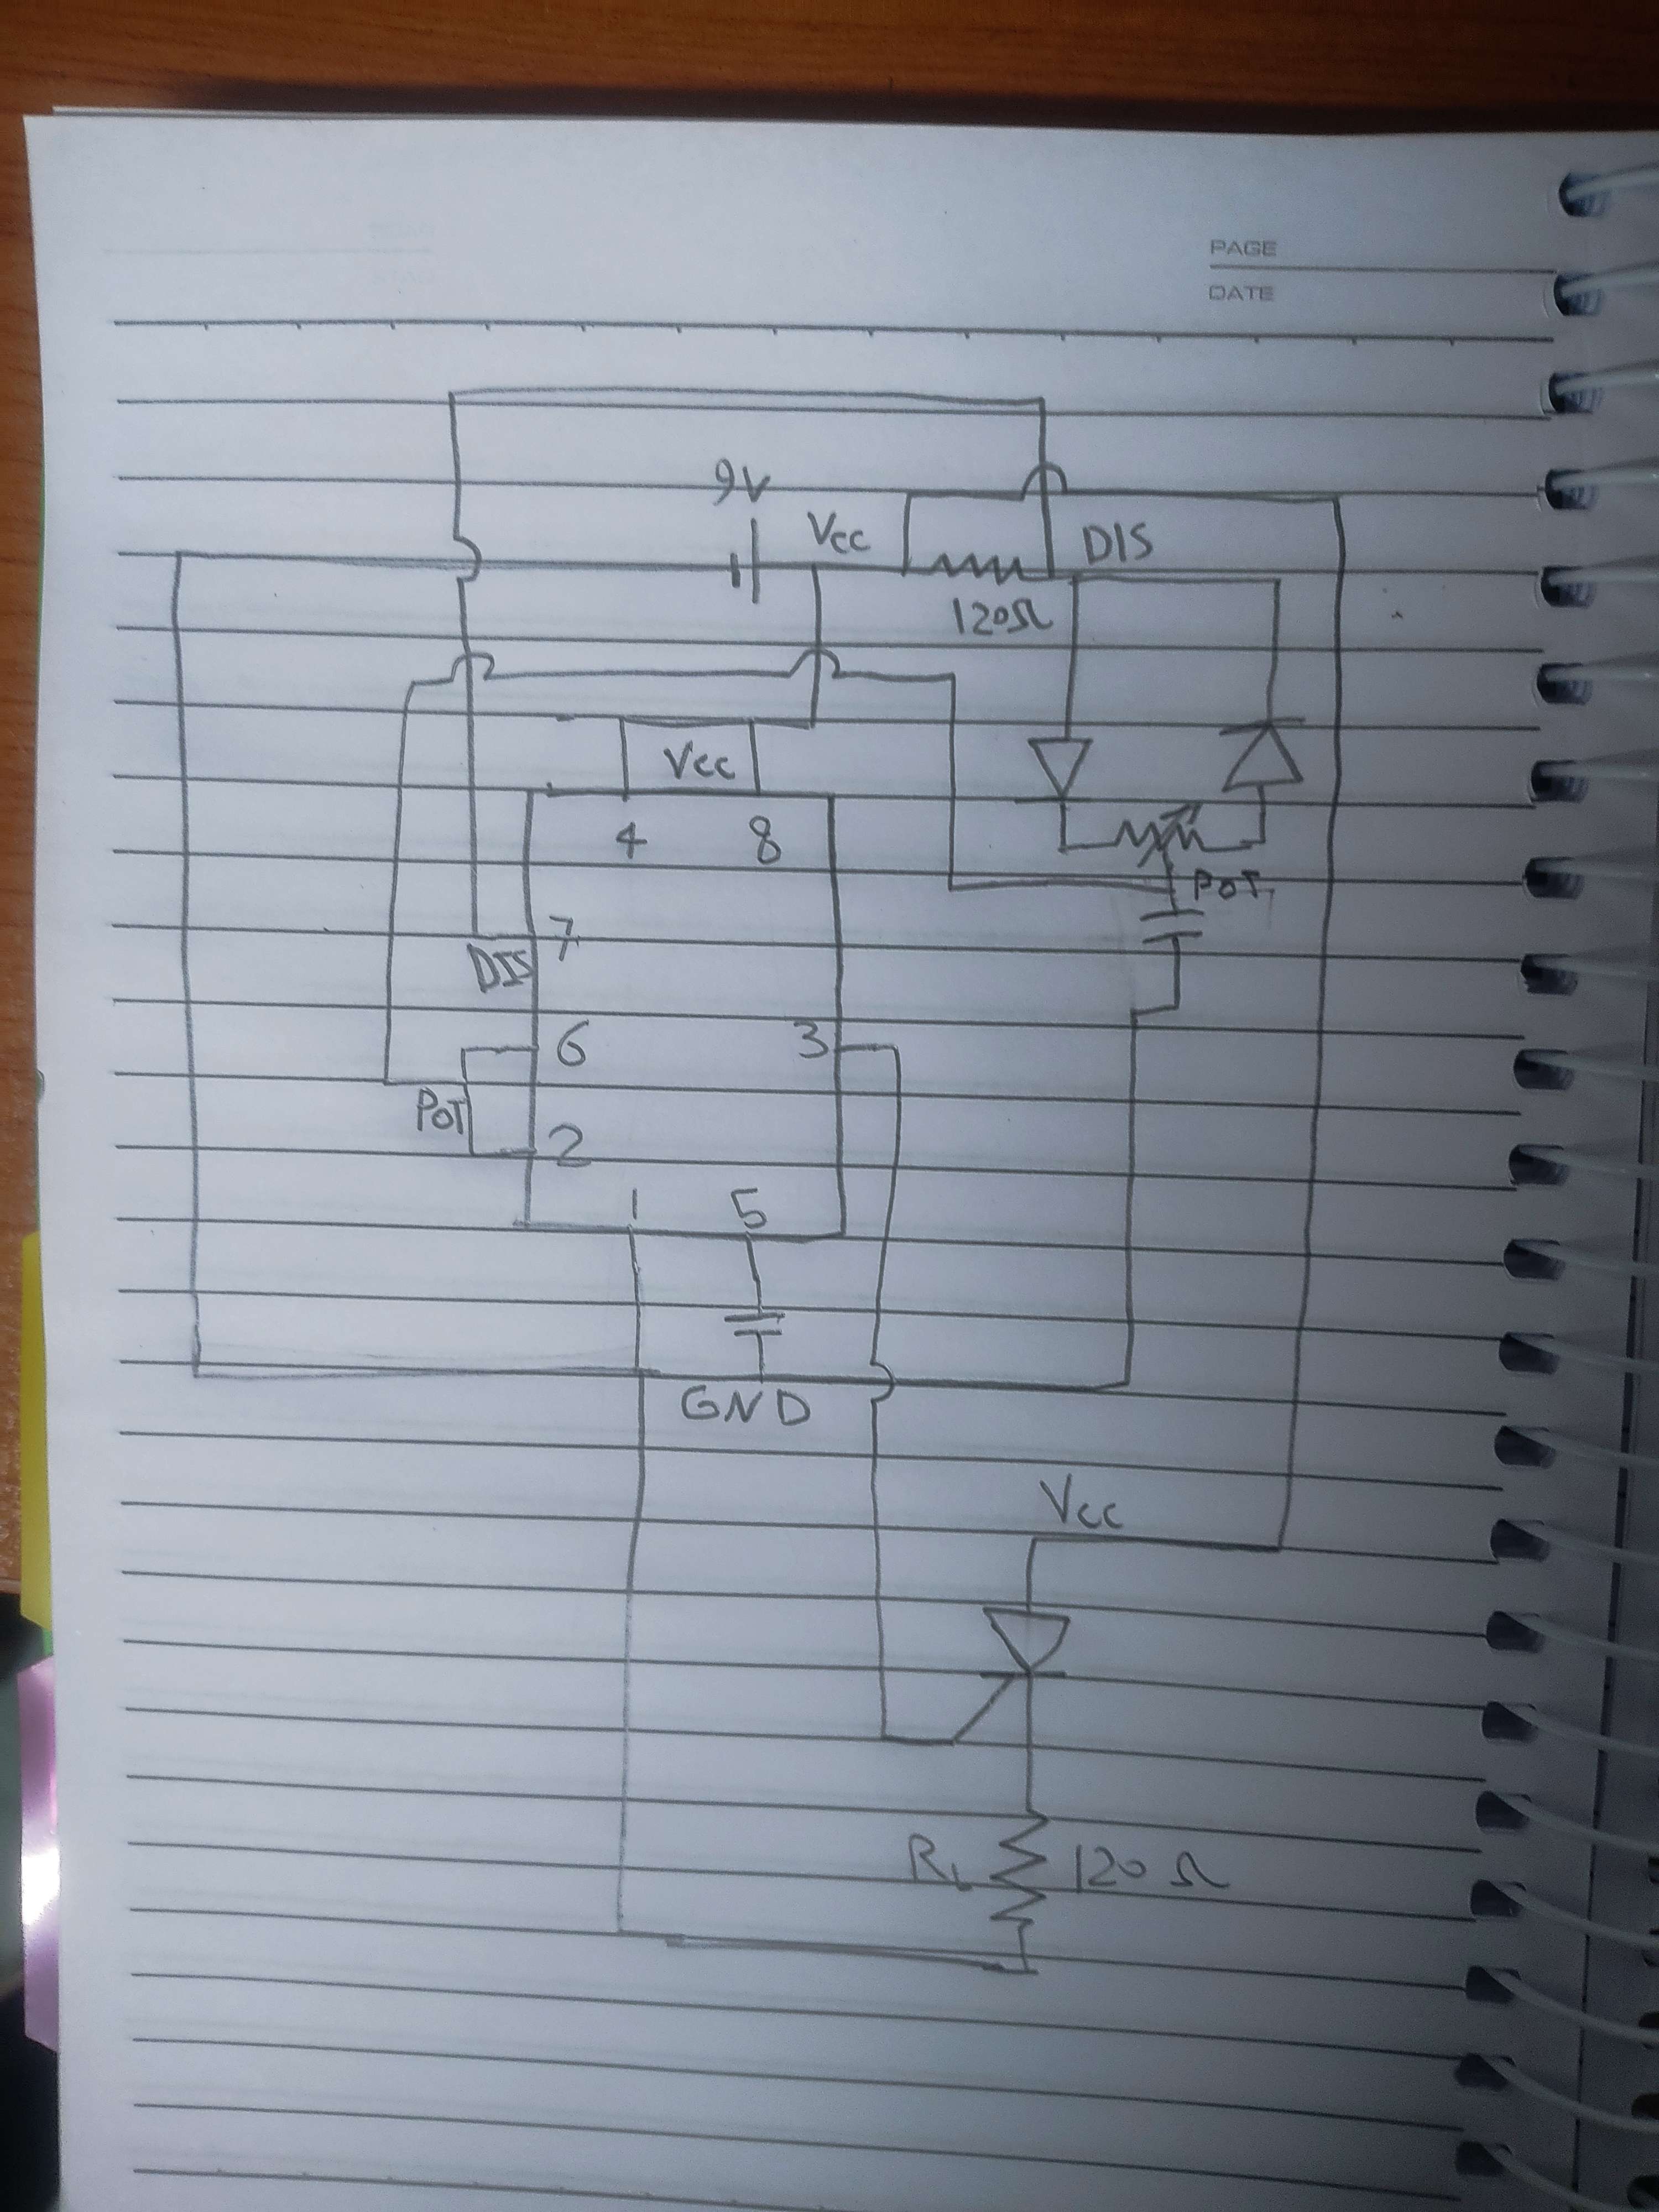 PAGE
DATE
9V
Vcc
DIS
120Ω
Vcc
4 8
POT
7
DIS
6 3
POT
2
1 5
GND
Vcc
RL 120 Ω